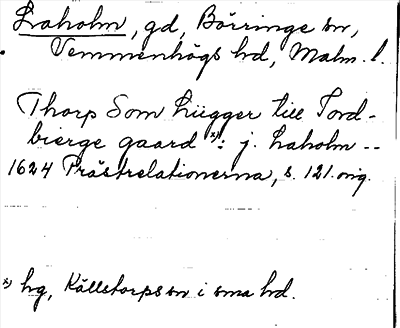 Laholm, gd, Börringe sn,
Vemmenhögs hd, Malm. l.
Thorp Som liigger till Tord-
bierge gaard x): j. Laholm --
1624 Prästrelationerna, s. 121. orig.
x) hg, Källstorps sn i sma hd.